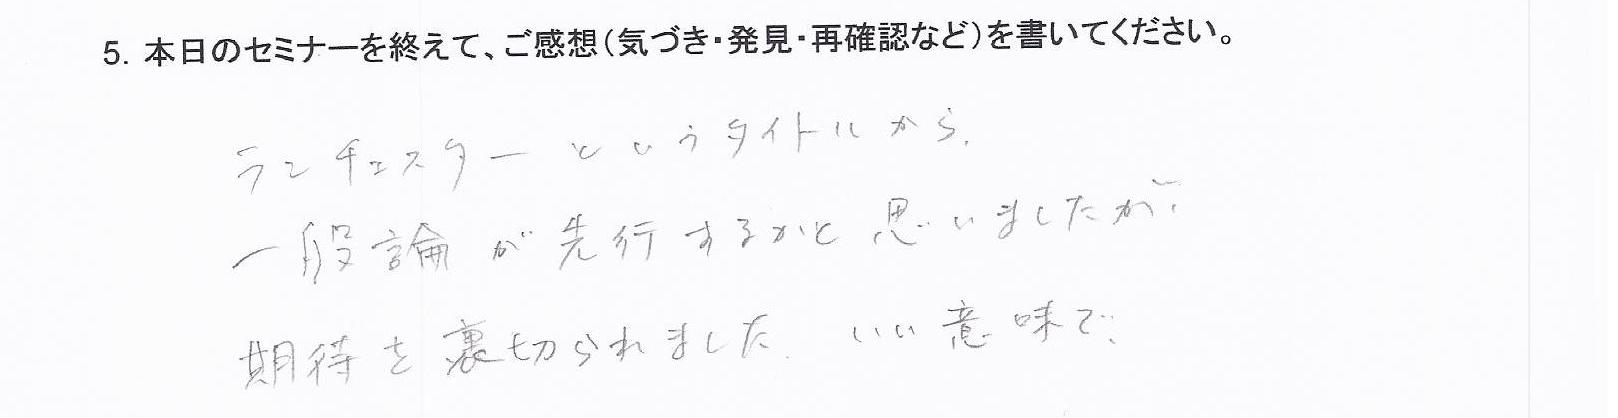 5. 本日のセミナーを終えて、ご感想(気づき・発見・再確認など)を書いてください。
ランチェスターというタイトルから、
一般論が先行するかと思いましたが、
期待を裏切られました。いい意味で。